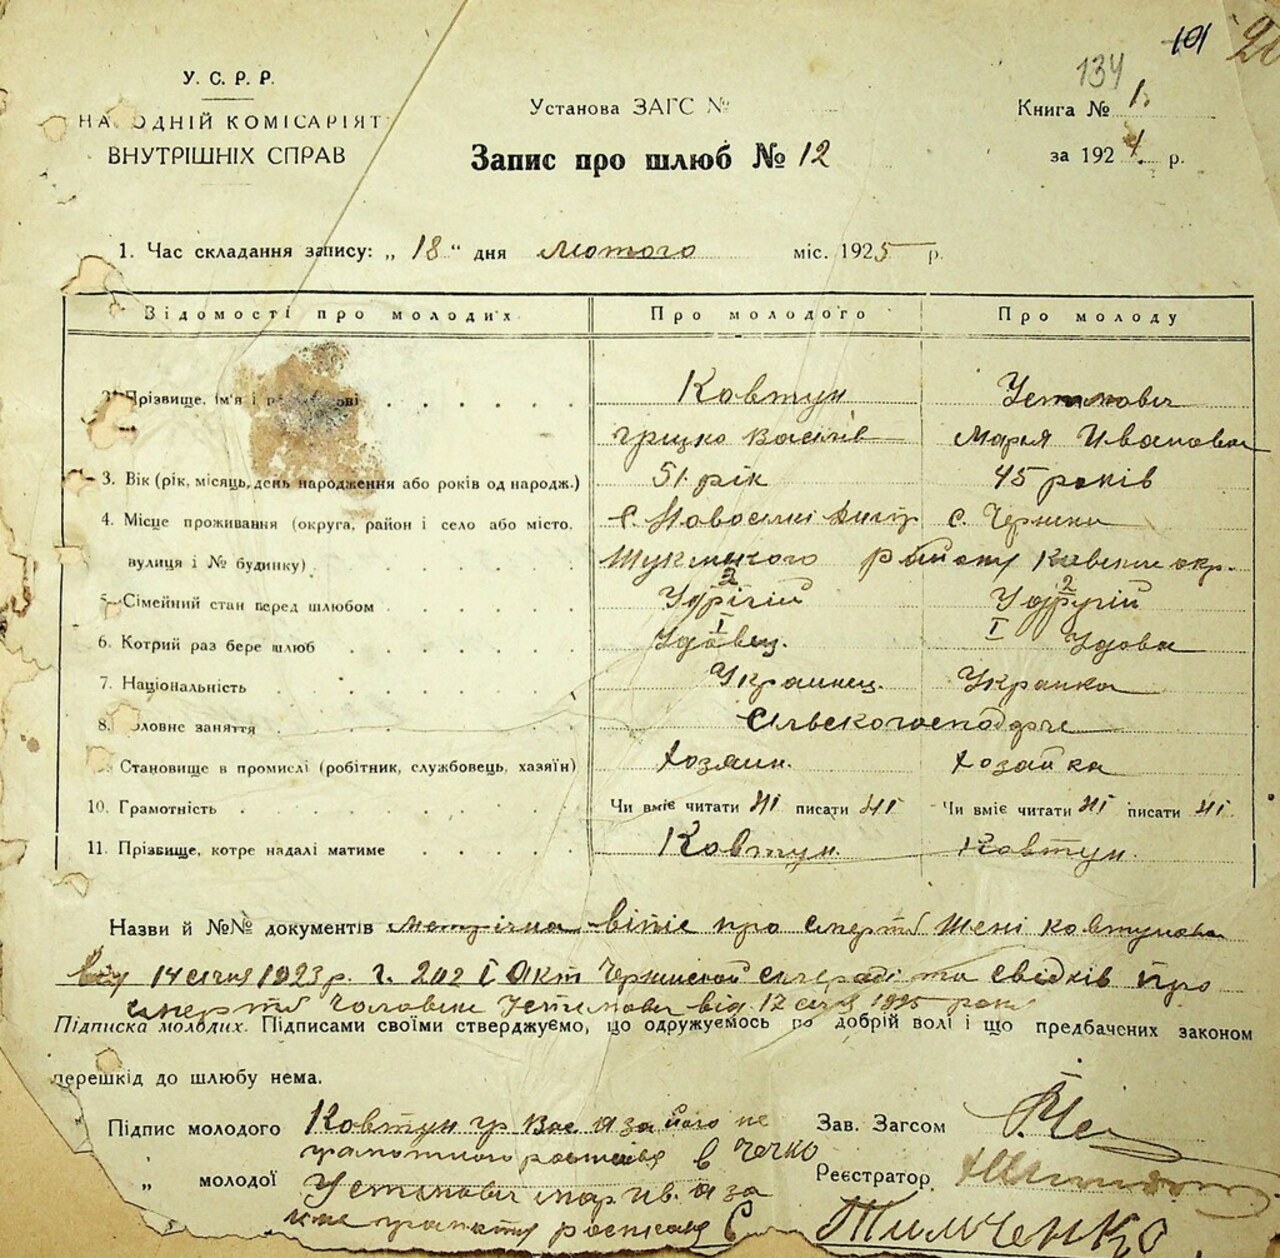 101 20
134
У. С. Р. Р.
НАРОДНІЙ КОМІСАРІЯТ
ВНУТРІШНІХ СПРАВ
Установа ЗАГС №
Книга № 1.
Запис про шлюб № 12
за 1924. р.
1. Час складання запису: „ 18 “ дня лютого міс. 1925 р.
Відомості про молодих Про молодого Про молоду
2. Прізвище, ім'я і Ковтун Устимович
Грицко Василів Марья Ивановна
3. Вік (рік, місяць, день народження або років од народж.) 51 рік 45 років
4. Місце проживання (округа, район і село або місто, с. Новосілки с.
вулиця і № будинку) району Київскои окр.
5. Сімейний стан перед шлюбом 2 2
6. Котрий раз бере шлюб I Удовец. I Удова
7. Національність Украинец. Украинка
8. Головне заняття Сільскогосподарче
Становище в промислі (робітник, службовець, хазяїн) хозяин. хозайка
10. Грамотність Чи вміє читати ні писати ні Чи вміє читати ні писати ні.
11. Прізвище, котре надалі матиме Ковтун. Ковтун.
Назви й №№ документів метрічна віпіс про смерть жені Ковтунова
від 14 січня 1923 р. г. 202 I Акт сільради та свідків про
смерть чоловіка Устимович від 12 січ 1925 року
Підписка молодих. Підписами своїми стверджуємо, що одружуємось по добрій волі і що предбачених законом
перешкід до шлюбу нема.
Підпис молодого Ковтун гр Вас. а за його не Зав. Загсом
грамотного росписався
„ молодої Устимович мар ив. а за Реєстратор
росписався Тимченко